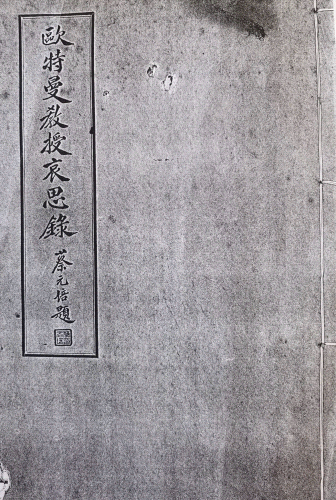 歐特曼教授哀思錄
蔡元培題